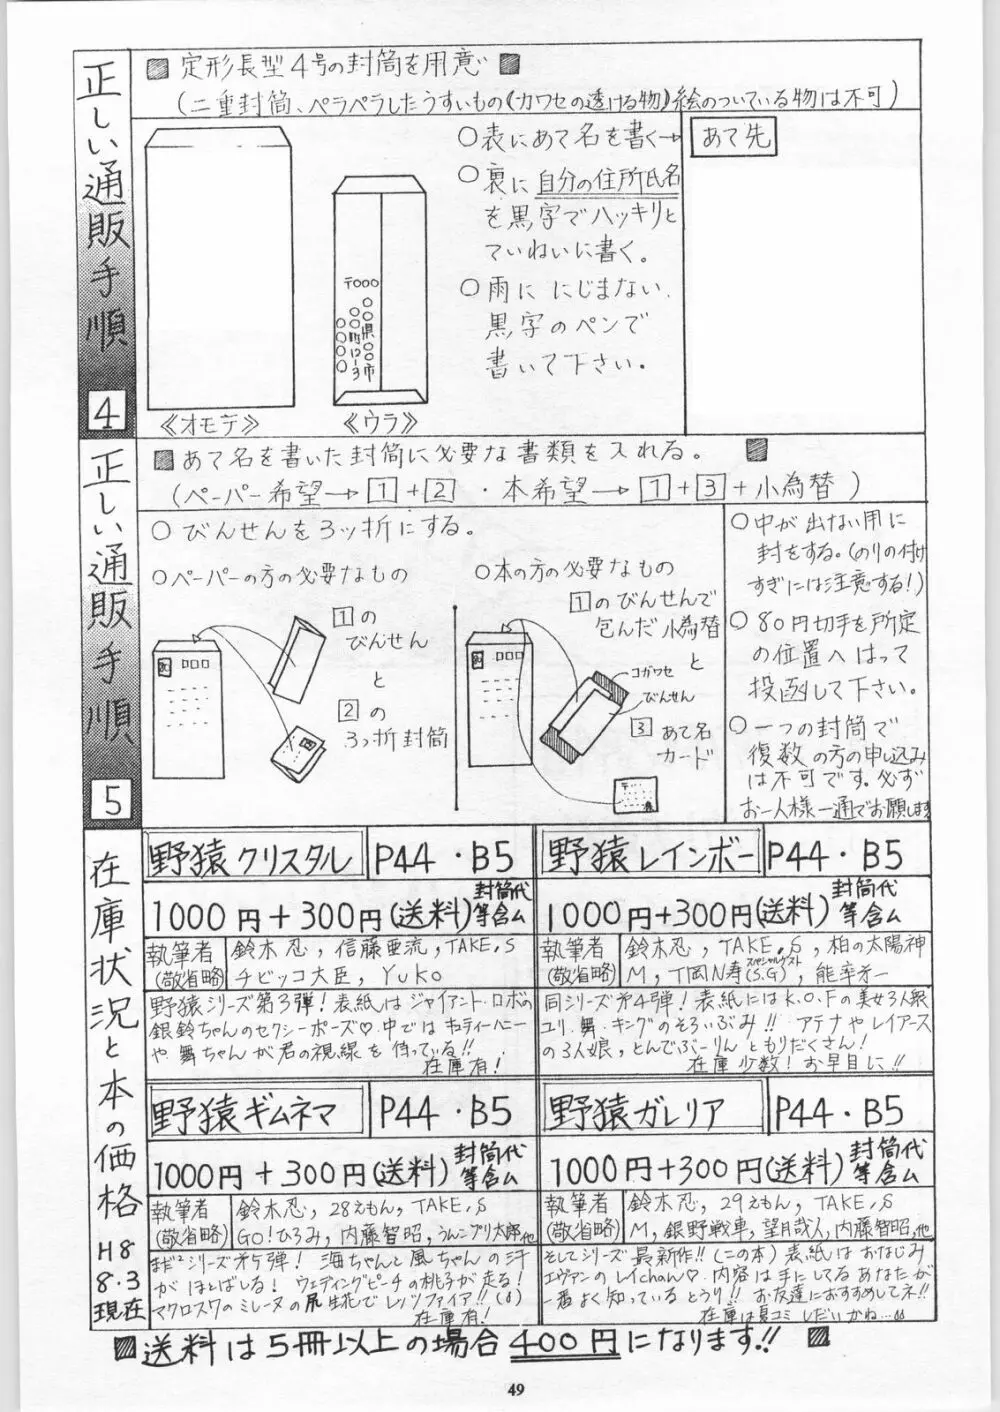 正しい通販手順
4
■ 定形長型4号の封筒を用意 ■
(二重封筒、ペラペラしたうすいもの《カワセの透ける物》絵のついている物は不可)
○表にあて名を書く→
あて先
○裏に自分の住所氏名
を黒字でハッキリと
ていねいに書く。
○雨ににじまない
黒字のペンで
書いて下さい。
〒○○○
○○県○○市
○○○町0-3
○○○○
《オモテ》
《ウラ》
正しい通販手順
5
■ あて名を書いた封筒に必要な書類を入れる。 ■
(ペーパー希望→1+2・本希望→1+3+小為替)
○びんせんを3ッ折にする。
○ペーパーの方の必要なもの
1の
びんせん
と
2の
3っ折封筒
○本の方の必要なもの
1のびんせんで
包んだ小為替
と
コガワセ
びんせん
3 あて名
カード
○中が出ない用に
封をする。(のりの付け
すぎには注意する!)
○80円切手を所定
の位置へはって
投函して下さい。
○一つの封筒で
復数の方の申し込み
は不可です。必ず
お一人様一通でお願します
在庫状況と本の価格
H8
8・3
現在
野猿クリスタル
P44・B5
1000円+300円(送料)封筒代等含ム
執筆者
(敬省略)
鈴木忍, 信藤亜流, TAKE,S
チビッコ大臣, YUKO
野猿シリーズ第3弾!表紙はジャイアント・ロボの
銀鈴ちゃんのセクシーポーズ♡中ではキューティーハニー
や舞ちゃんが君の視線を待っている!!
在庫有!
野猿レインボー
P44・B5
1000円+300円(送料)封筒代等含ム
執筆者
(敬省略)
鈴木忍, TAKE,S, 柏の太陽神
M, T岡N寿(S.G)スペシャルゲスト, 能率才一
同シリーズ才4弾!表紙にはK.O.Fの美女3人組
ユリ、舞、キングのそろいぶみ!! アテナやレイアース
の3人娘,とんでぶーりんともりだくさん!
在庫少数!お早目に!!
野猿ギムネマ
P44・B5
1000円+300円(送料)封筒代等含ム
執筆者
(敬省略)
鈴木忍, 28えもん, TAKE,S
GO!ひろみ, 内藤智昭, うんこブリ太郎他
シリーズ才5弾! 海ちゃんと風ちゃんの汗
がほとばしる! ウェディングピーチの桃子が走る!
マクロス7のミレーヌの尻生花でレッツファイア!!(♂)
在庫有!
野猿ガレリア
P44・B5
1000円+300円(送料)封筒代等含ム
執筆者
(敬省略)
鈴木忍, 29えもん, TAKE,S
M, 銀野戦車, 望月哉人, 内藤智昭,他
そしてシリーズ最新作!!(この本)表紙はおなじみ
エヴァンのレイchan♡ 内容は手にしてるあなたが
一番よく知っているとうり!! お友達におすすめしてネ!!
在庫は夏コミしだいかね…
■送料は5冊以上の場合400円になります!! ■
49